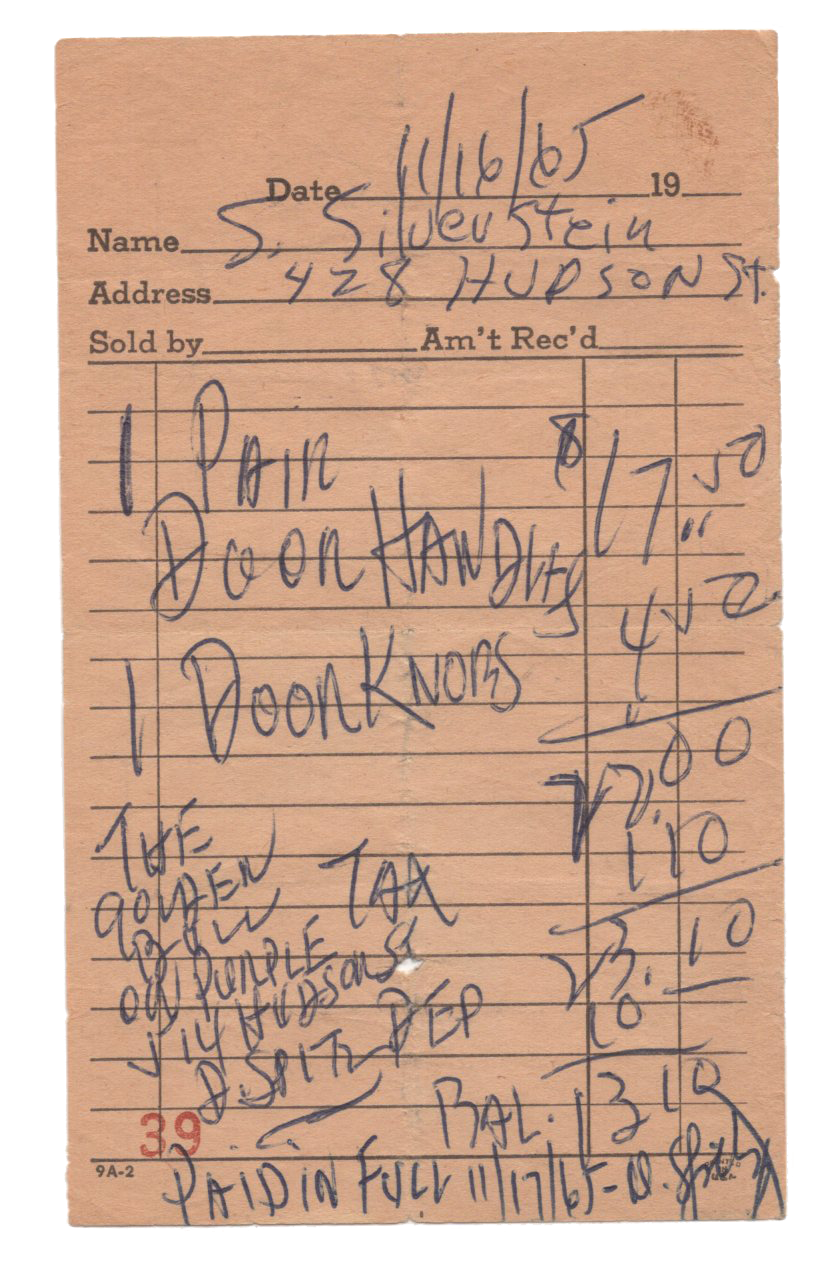 Date 11/16/65 19
Name S. Silverstein
Address 428 HUDSON St.
Sold by Am't Rec'd
1 PAIR $ 17.50
DOOR HANDLES
1 DOOR KNOBS 4.50
22.00
TAX 1.10
23.10
DEP 10
BAL. 13 10
THE
GOLDEN
BULL
PURPLE
514 HUDSON St
D. SPITZ
39
9A-2
PAID IN FULL 11/17/65 - D. Spitz